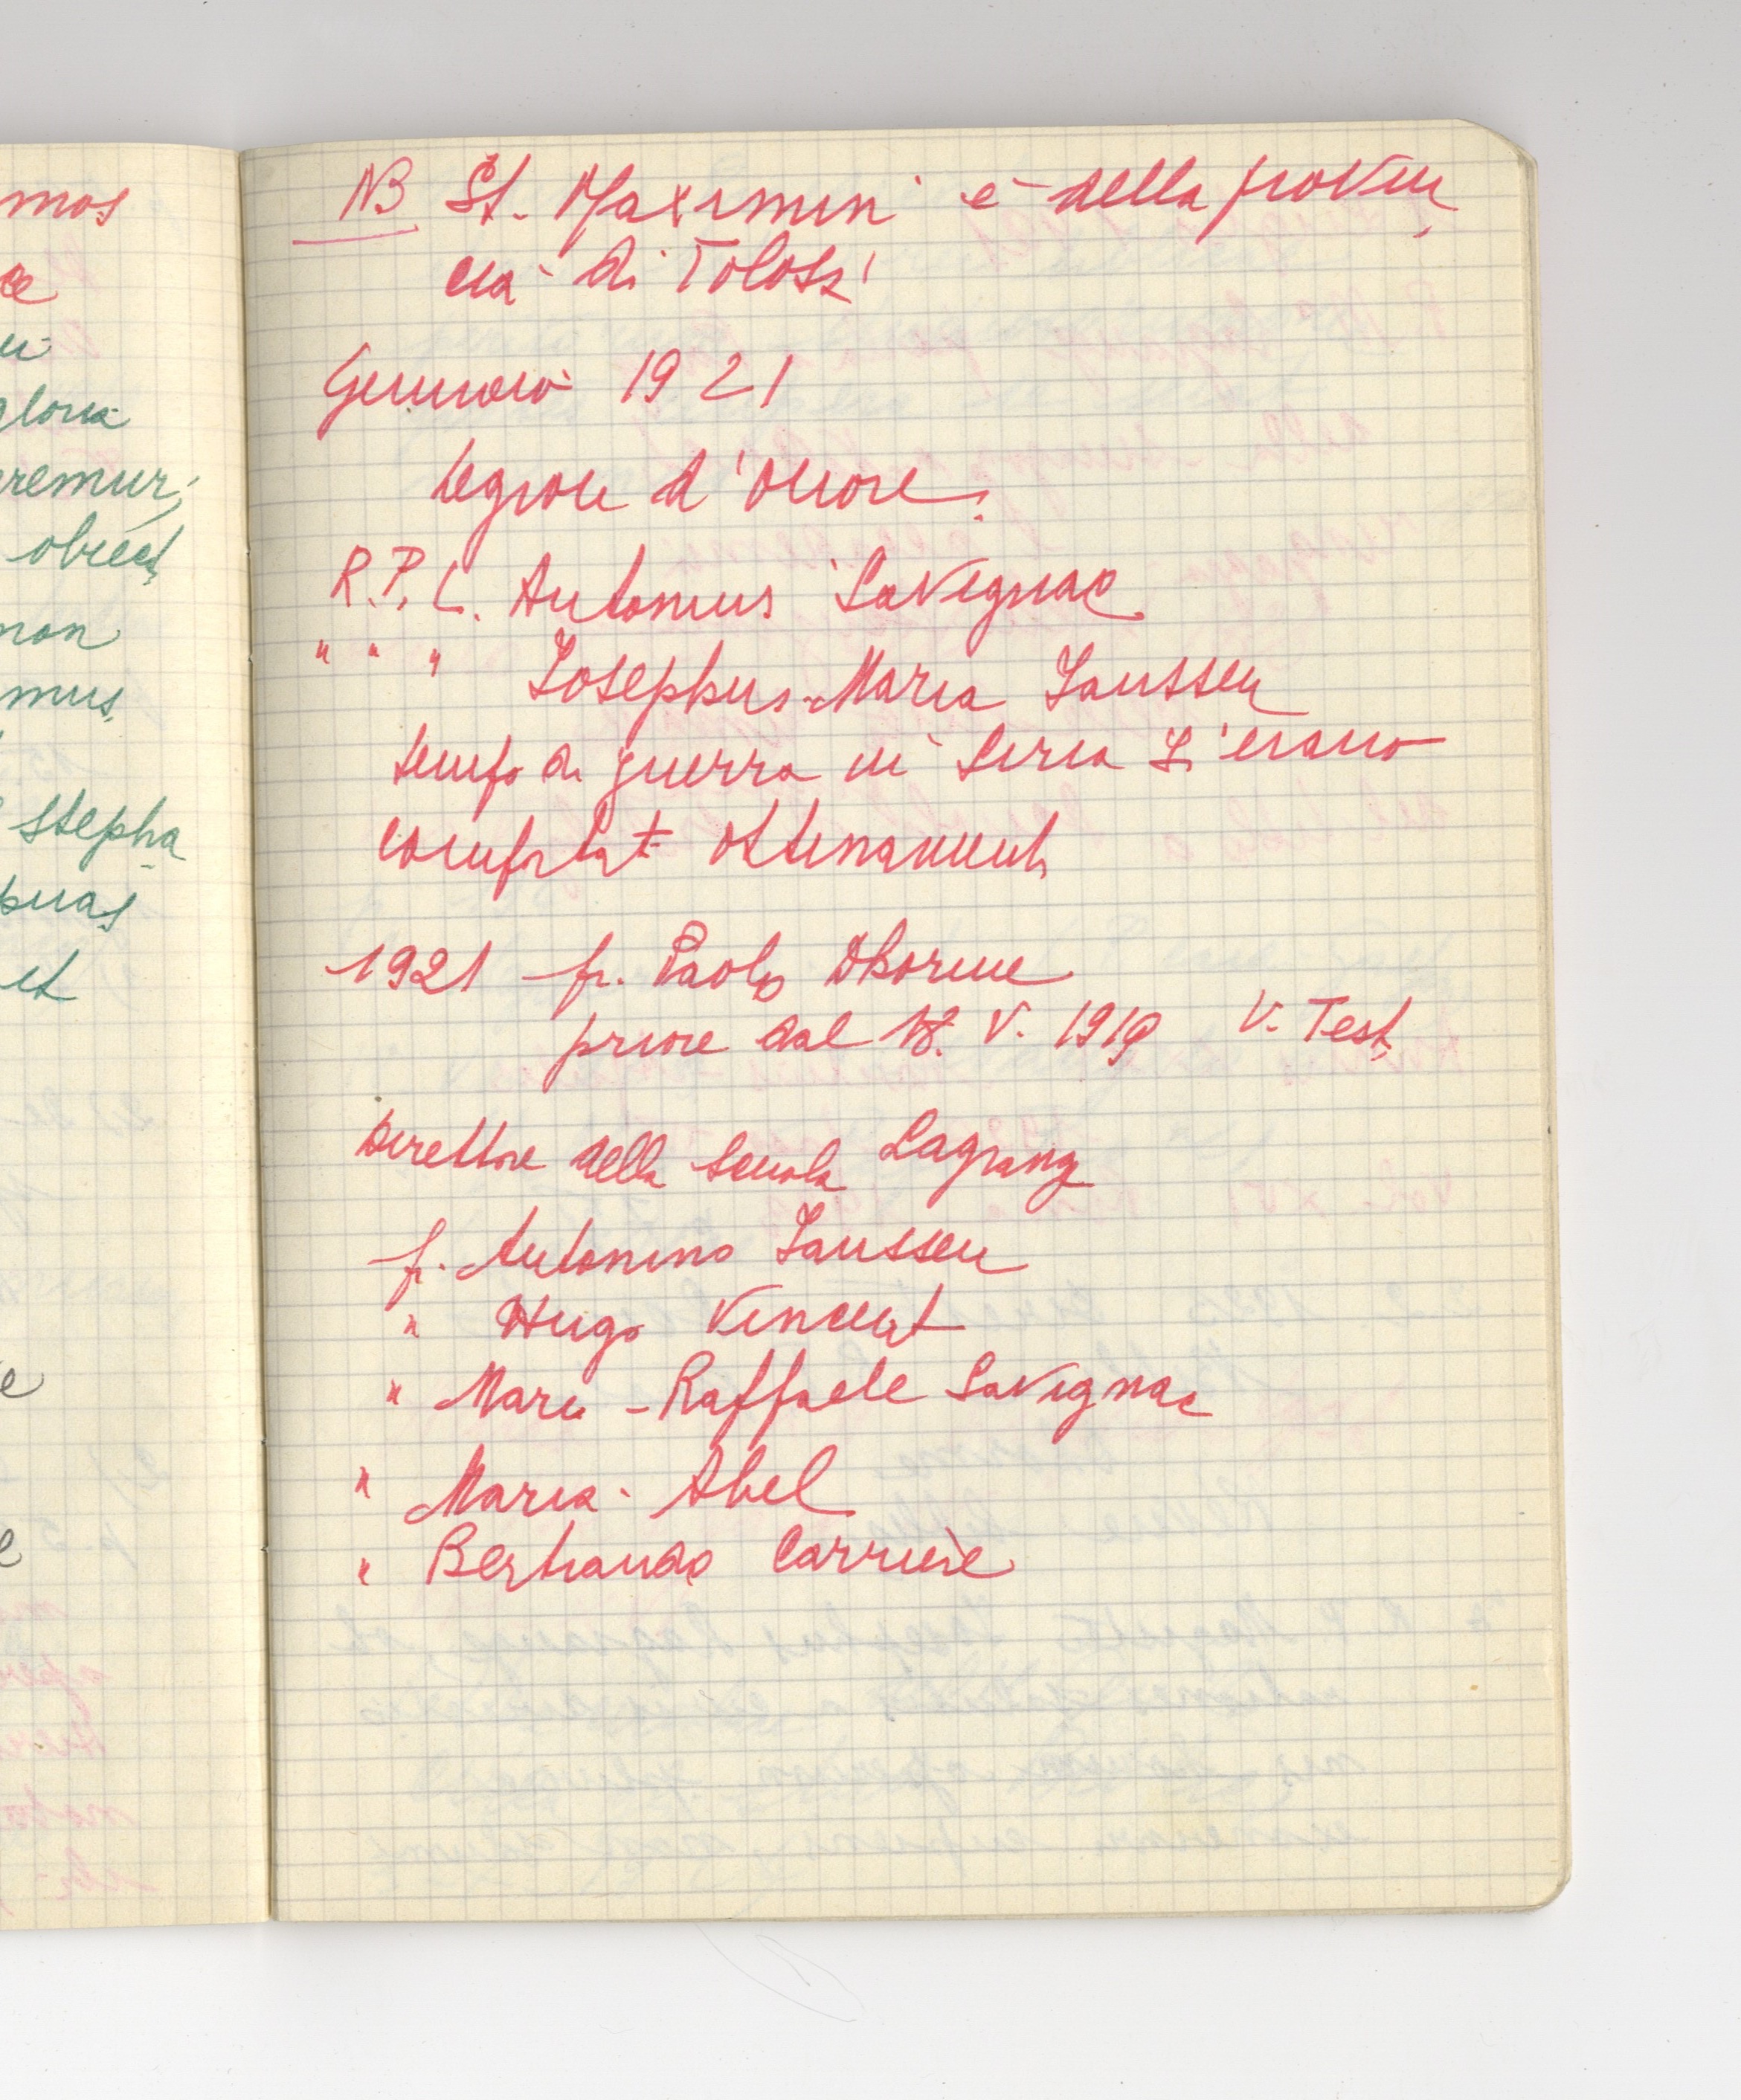 mos
gloria
remur;
obiect
non
mus.
stepha
et
NB St. Maximin è della provin
cia di Tolosa
Gennaio 1921
Legione d'Onore.
R.P.L. Antonius Savignac
" " " Iosephus-Maria Janssen
tempo di guerra in Siria si erano
comportat ottimament
1921 fr. Paolo Dhorme
priore dal 18. V. 1919 V. Test.
Direttore della Scuola Lagrang
fr. Antonino Janssen
" Hugo Vincent
" Mari-Raffaele Savignac
" Maria-Abel
" Bertrando Carrière